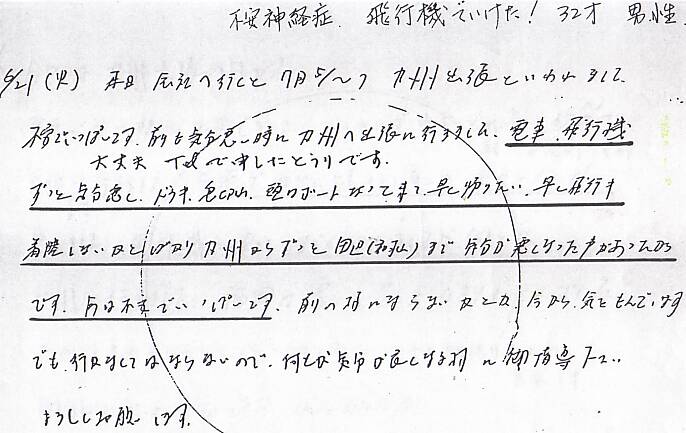 不安神経症 飛行機でいけた! 32才 男性
5/21 (火) 本日 会社へ行くと 7月 九州出張といわれまして
不安でいっぱいです。前も気分悪い時に九州へ出張に行きまして、電車、飛行機
大丈夫 Telで申したとうりです。
ずっと気分悪し、ドウキ、息切れ、頭がボートなって来て、早く帰りたい、早く飛行キ
着陸しないかとばかり九州からずっと田辺(和歌山)まで気分が悪くなった事があったから
です。今は不安でいっぱいです。前の様にならないかとか、今から、気をもんでいます
でも、行かなくてはならないので、何とか気分が良くなる様に御指導下さい
よろしくお願いします。